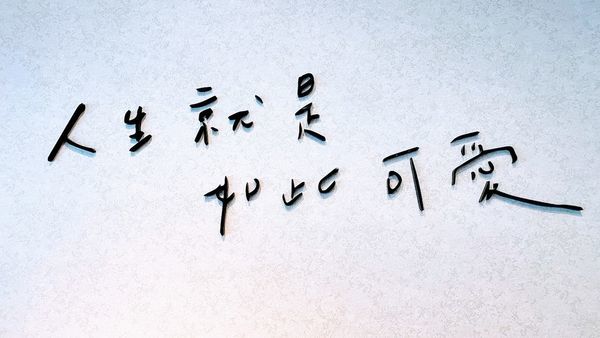 人生就是
如此可愛